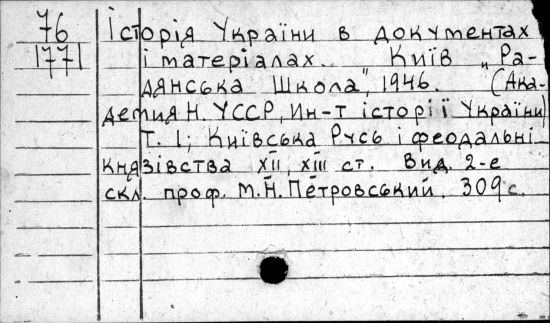 76 Історія України в документах
1771 і матеріалах. Київ „Ра-
дянська Школа", 1946. (Ака-
демия Н. УССР, Ин-т історії України)
Т. 1; Київська Русь і феодальні
князівства XII, XIII ст. Вид. 2-е
скл. проф. М.Н. Петровський. 309 с.